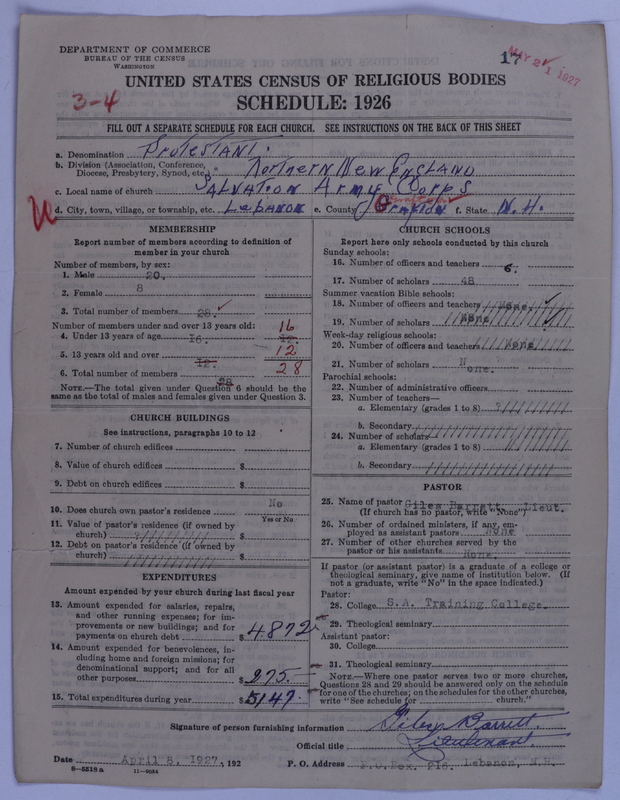 DEPARTMENT OF COMMERCE
BUREAU OF THE CENSUS
WASHINGTON
17
MAY 21 1927
UNITED STATES CENSUS OF RELIGIOUS BODIES
3-4
SCHEDULE: 1926
FILL OUT A SEPARATE SCHEDULE FOR EACH CHURCH. SEE INSTRUCTIONS ON THE BACK OF THIS SHEET
a. Denomination Protestant.
b. Division (Association, Conference, Diocese, Presbytery, Synod, etc.) Northern New England
c. Local name of church Salvation Army Corps
d. City, town, village, or township, etc. Lebanon e. County Grafton f. State N.H.
MEMBERSHIP
Report number of members according to definition of member in your church
Number of members, by sex:
1. Male 20.
2. Female 8
3. Total number of members 28.
Number of members under and over 13 years old:
4. Under 13 years of age 16. 12. 16
5. 13 years old and over 12. 12
6. Total number of members 28 28
NOTE.—The total given under Question 6 should be the same as the total of males and females given under Question 3.
CHURCH BUILDINGS
See instructions, paragraphs 10 to 12
7. Number of church edifices
8. Value of church edifices $
9. Debt on church edifices $
10. Does church own pastor's residence No
Yes or No
11. Value of pastor's residence (if owned by church) $
12. Debt on pastor's residence (if owned by church) $
EXPENDITURES
Amount expended by your church during last fiscal year
13. Amount expended for salaries, repairs, and other running expenses; for improvements or new buildings; and for payments on church debt $ 4872
14. Amount expended for benevolences, including home and foreign missions; for denominational support; and for all other purposes $ 275.
15. Total expenditures during year $ 5147.
CHURCH SCHOOLS
Report here only schools conducted by this church
Sunday schools:
16. Number of officers and teachers 6.
17. Number of scholars 48
Summer vacation Bible schools:
18. Number of officers and teachers None.
19. Number of scholars None
Week-day religious schools:
20. Number of officers and teachers None
21. Number of scholars None.
Parochial schools:
22. Number of administrative officers
23. Number of teachers—
a. Elementary (grades 1 to 8)
b. Secondary
24. Number of scholars—
a. Elementary (grades 1 to 8)
b. Secondary
PASTOR
25. Name of pastor Giles Barrett. Lieut.
(If church has no pastor, write "None")
26. Number of ordained ministers, if any, employed as assistant pastors None
27. Number of other churches served by the pastor or his assistants None.
If pastor (or assistant pastor) is a graduate of a college or theological seminary, give name of institution below. (If not a graduate, write "No" in the space indicated.)
Pastor:
28. College S.A. Training College.
29. Theological seminary
Assistant pastor:
30. College
31. Theological seminary
NOTE.—Where one pastor serves two or more churches, Questions 28 and 29 should be answered only on the schedule for one of the churches; on the schedules for the other churches, write "See schedule for church."
Signature of person furnishing information Giles Barrett.
Official title Lieutenant.
Date April 8, 1927., 192 P. O. Address P.O.Box. 216. Lebanon, N.H.
8-5518a 11-9034